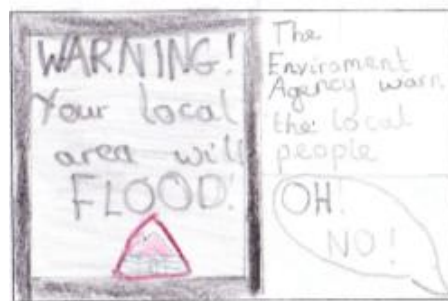 WARNING!
Your local
area will
FLOOD!
The
Enviroment
Agency warn
the local
people
OH!
NO!